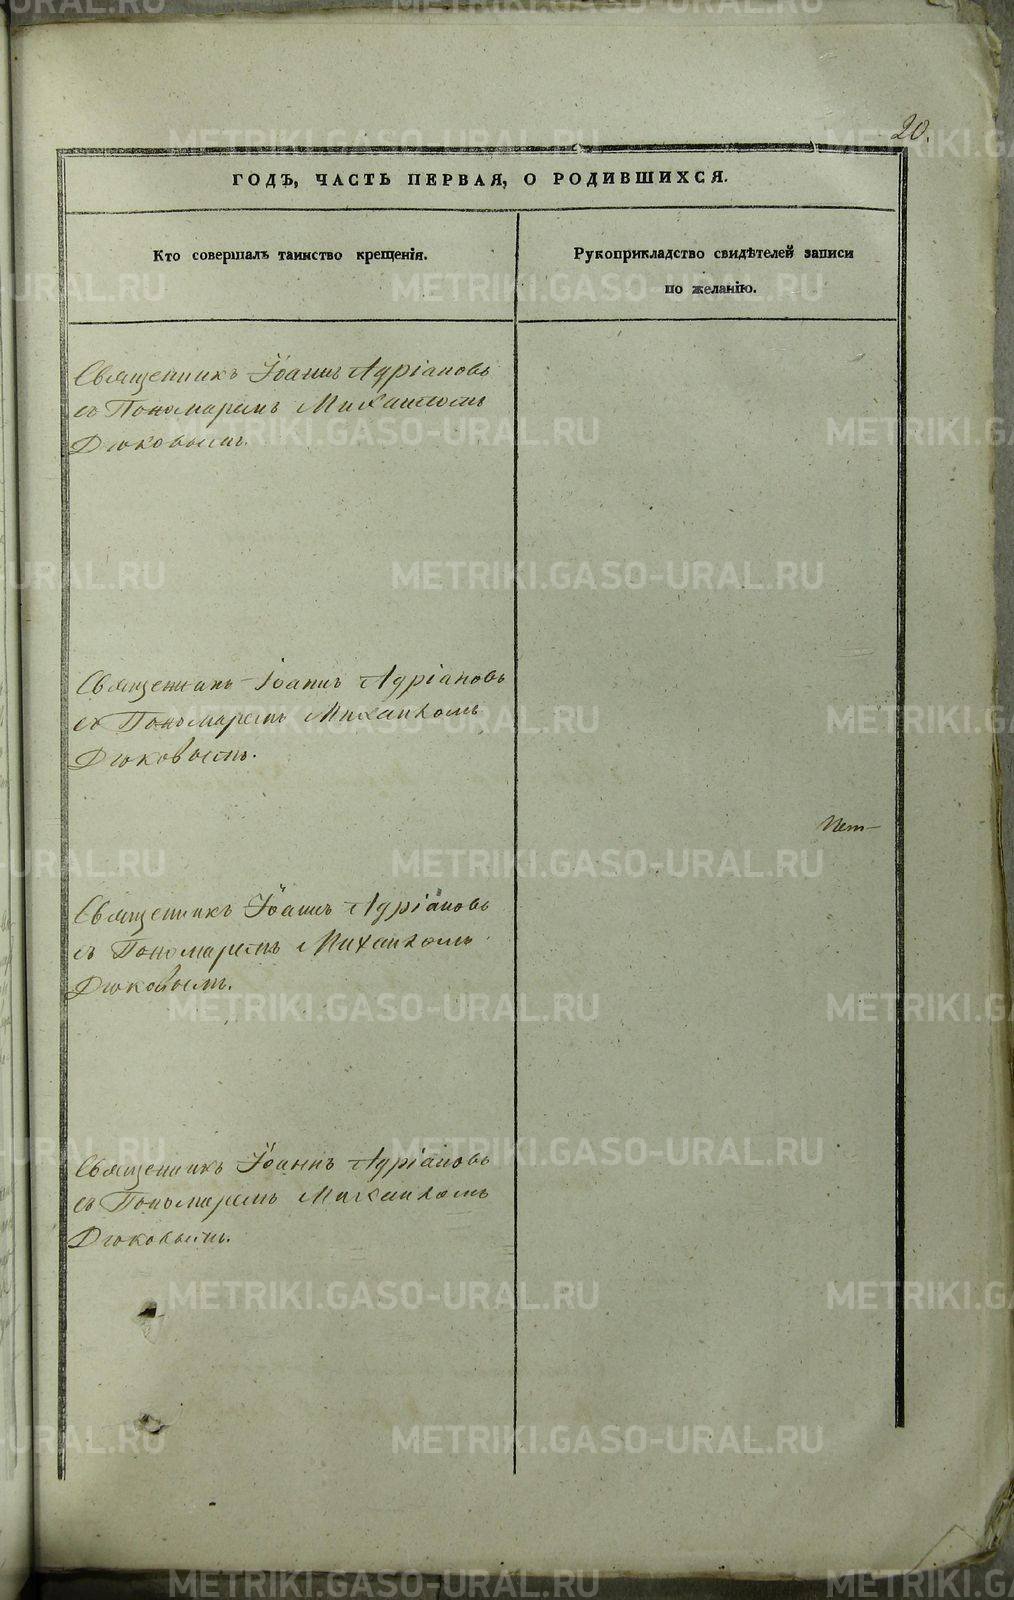 20.
ГОДЪ, ЧАСТЬ ПЕРВАЯ, О РОДИВШИХСЯ.
Кто совершалъ таинство крещенія.
Рукоприкладство свидѣтелей записи
по желанію.
Священникъ Іоаннъ Адріановъ
съ Пономаремъ Михаиломъ
Дюковымъ.
Священникъ Іоаннъ Адріановъ
съ Пономаремъ Михаиломъ
Дюковымъ.
Священникъ Іоаннъ Адріановъ
съ Пономаремъ Михаиломъ
Дюковымъ.
Священникъ Іоаннъ Адріановъ
съ Пономаремъ Михаиломъ
Дюковымъ.
METRIKI.GASO-URAL.RU